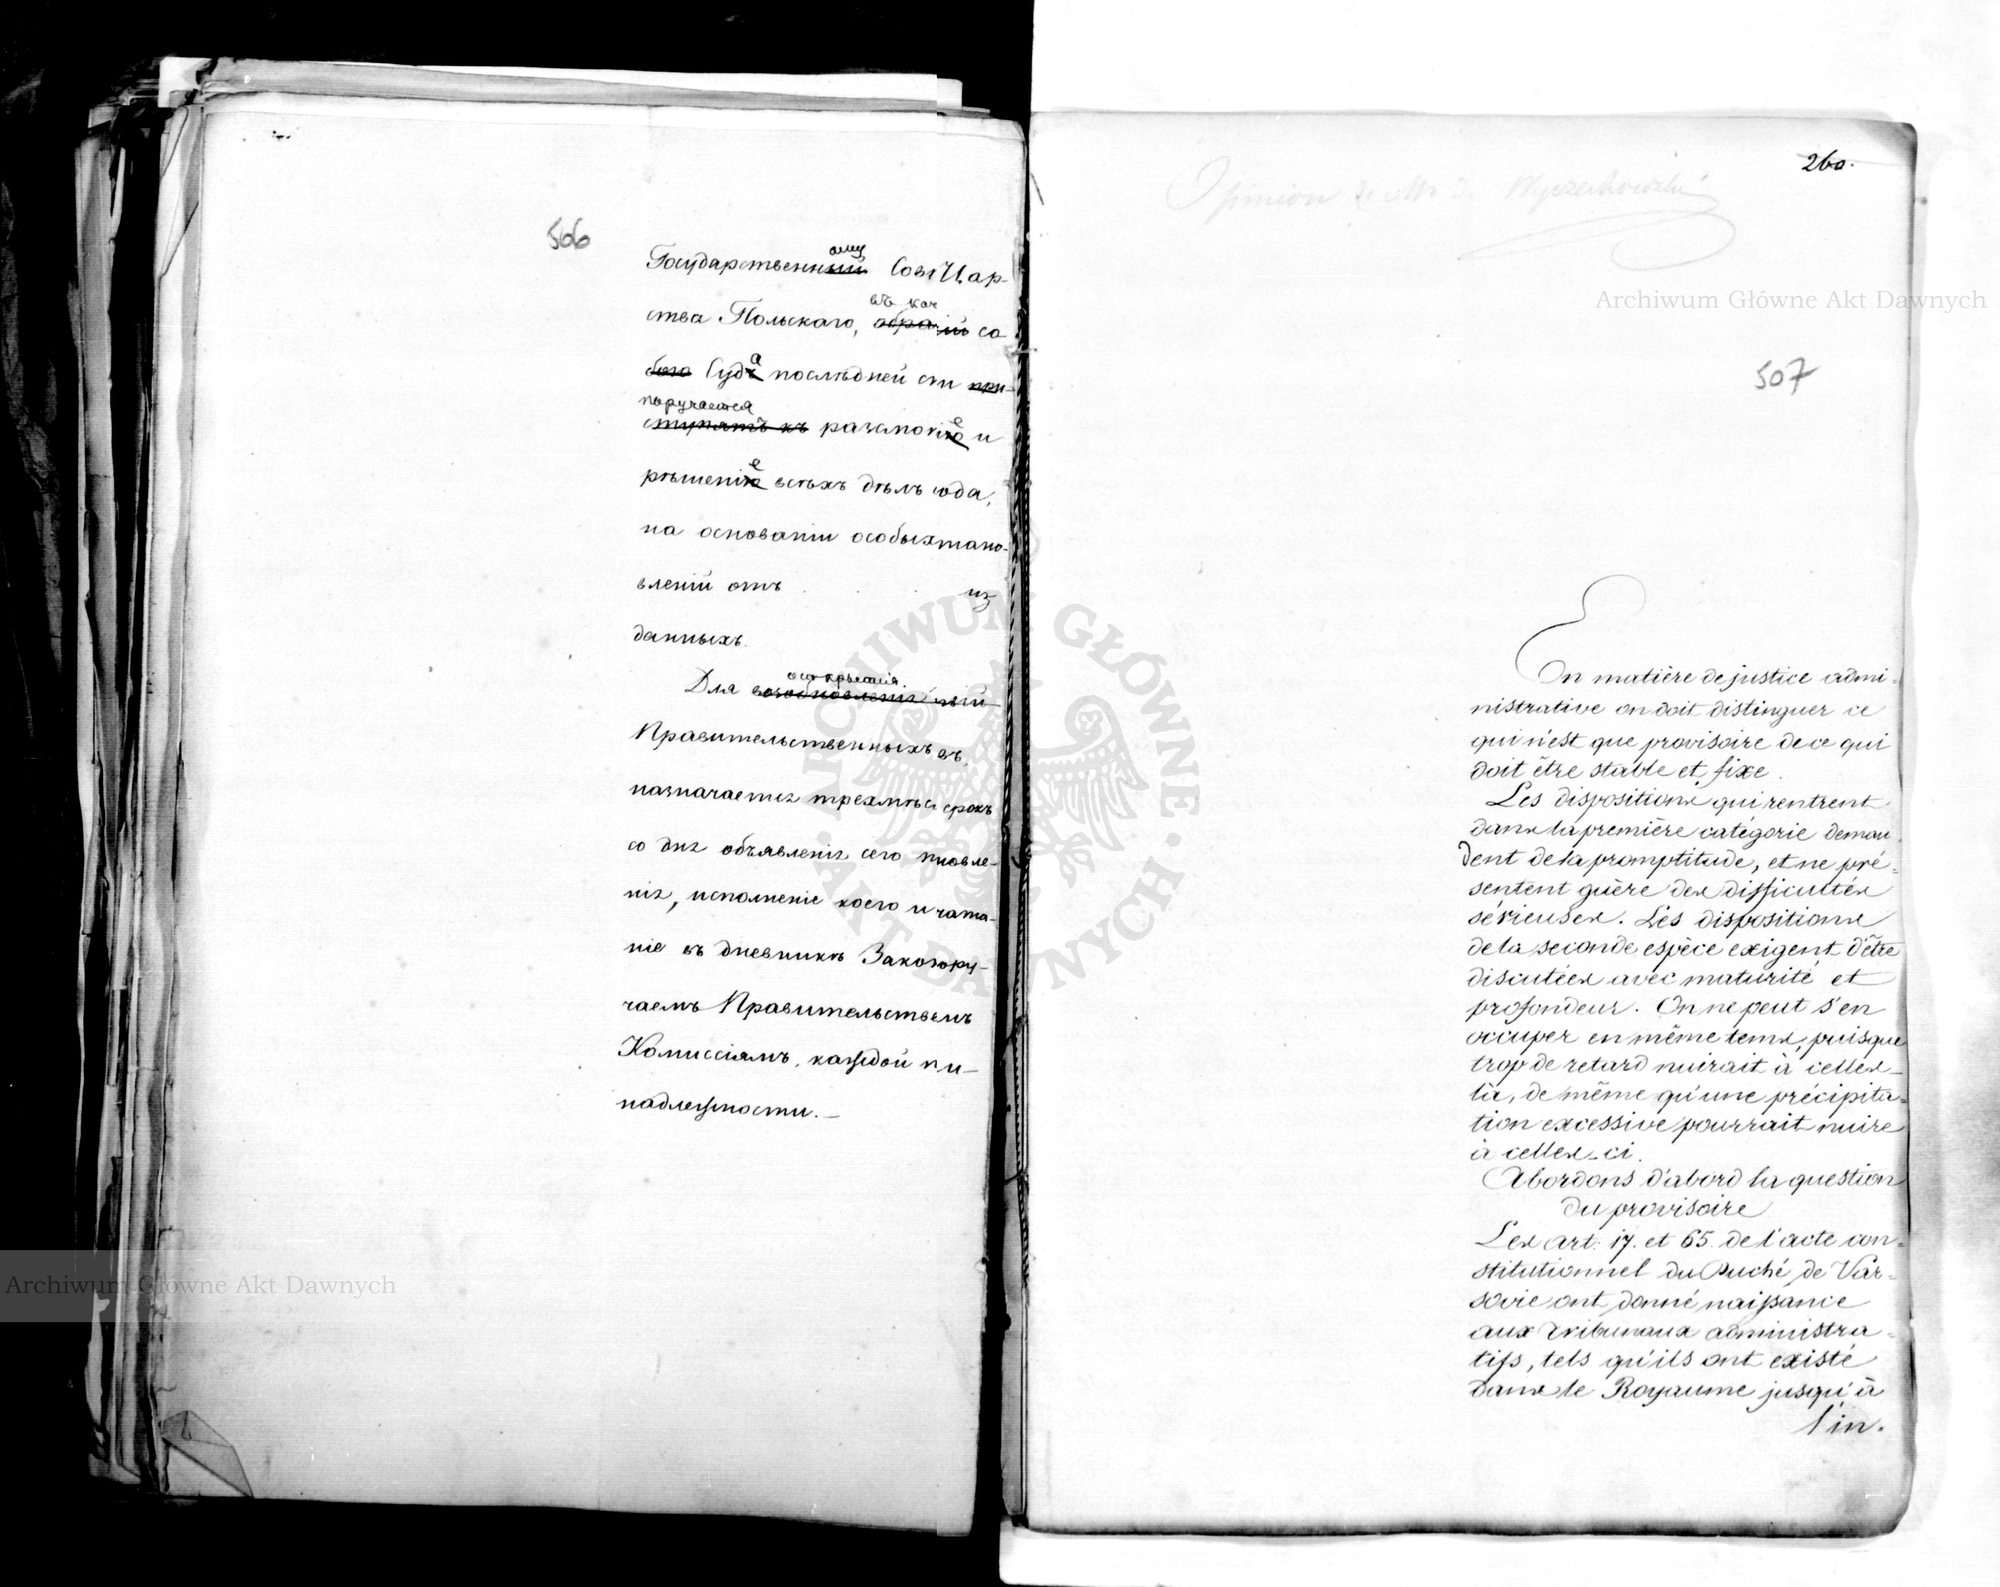 506
Государственный ому Совѣ Цар-
ства Польскаго, въ кач со
бою Суда послѣдней сти при-
поручается
ступятъ къ разсмотрѣ е и
рѣшенію е всѣхъ дѣлъ
на основаніи особых тано-
вленій отъ из
данныхъ.
открытія
Для возобновленія
Правительственныхъ въ
назначается трехмѣс срокъ
со дня объявленія сего новле-
нія, исполненіе коего и чата-
ніе въ дневникѣ Зако ру-
чаемъ Правительствен
Комиссіямъ, каждой при-
надлежности.—
260.
Opinion de Mr de Wyczechowski
507
En matière de justice admi-
nistrative on doit distinguer ce
qui n'est que provisoire de ce qui
doit être stable et fixe.
Les dispositions qui rentrent
dans la première catégorie deman
dent de la promptitude, et ne pré-
sentent guère des difficultés
sérieuses. Les dispositions
de la seconde espèce exigent d'être
discutées avec maturité et
profondeur. On ne peut s'en
occuper en même tems, puisque
trop de retard nuirait à celles-
là, de même qu'une précipita-
tion excessive pourrait nuire
à celles-ci.
Abordons d'abord la question
du provisoire
Les art: 17. et 65. de l'acte con-
stitutionnel du Duché de Var-
sovie ont donné naissance
aux tribunaux administra-
tifs, tels qu'ils ont existé
dans le Royaume jusqu'à
l'in.
Archiwum Główne Akt Dawnych
Archiwum Główne Akt Dawnych
ARCHIWUM GŁÓWNE AKT DAWNYCH